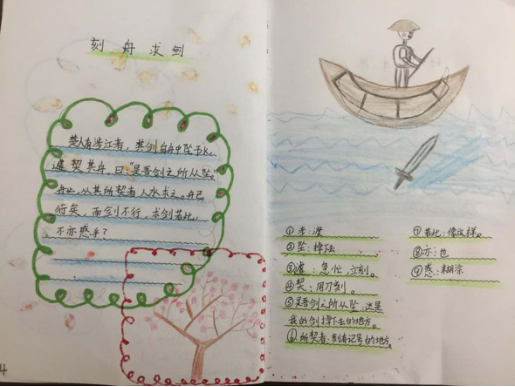 刻舟求剑
楚人有涉江者,其剑自舟中坠于水,
遽契其舟,曰“是吾剑之所从坠。”
舟止,从其所契者入水求之。舟已
行矣,而剑不行,求剑若此,
不亦惑乎?
①涉:渡
②坠:掉下
③遽:急忙,立刻。
④契:用刀刻。
⑤是吾剑之所从坠:这是
我的剑掉下去的地方。
⑥所契者:刻有记号的地方。
⑦若此:像这样。
⑧亦:也
⑨惑:糊涂
4